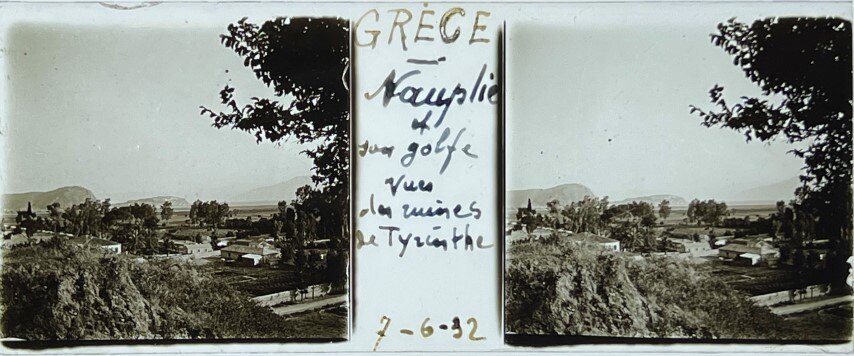 GRÈCE
Nauplie
et
son golfe
vus
des ruines
de Tyrinthe
7-6-32